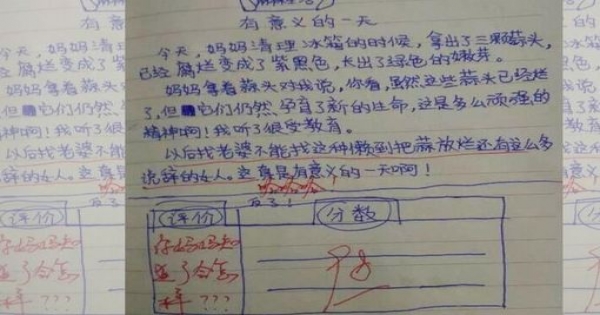 有意义的一天
今天，妈妈清理冰箱的时候，拿出了三颗蒜头，
已经腐烂变成了紫黑色，长出了绿色的嫩芽。
妈妈拿着蒜头对我说，你看，虽然这些蒜头已经烂
了，但它们仍然孕育了新的生命，这是多么顽强的
精神啊！我听了很受教育。
以后找老婆不能找这种懒到把蒜放烂还有这么多
说辞的女人。这真是有意义的一天啊！
哈哈哈
反了！
评价
分数
你妈妈知
道了会怎
样？？？